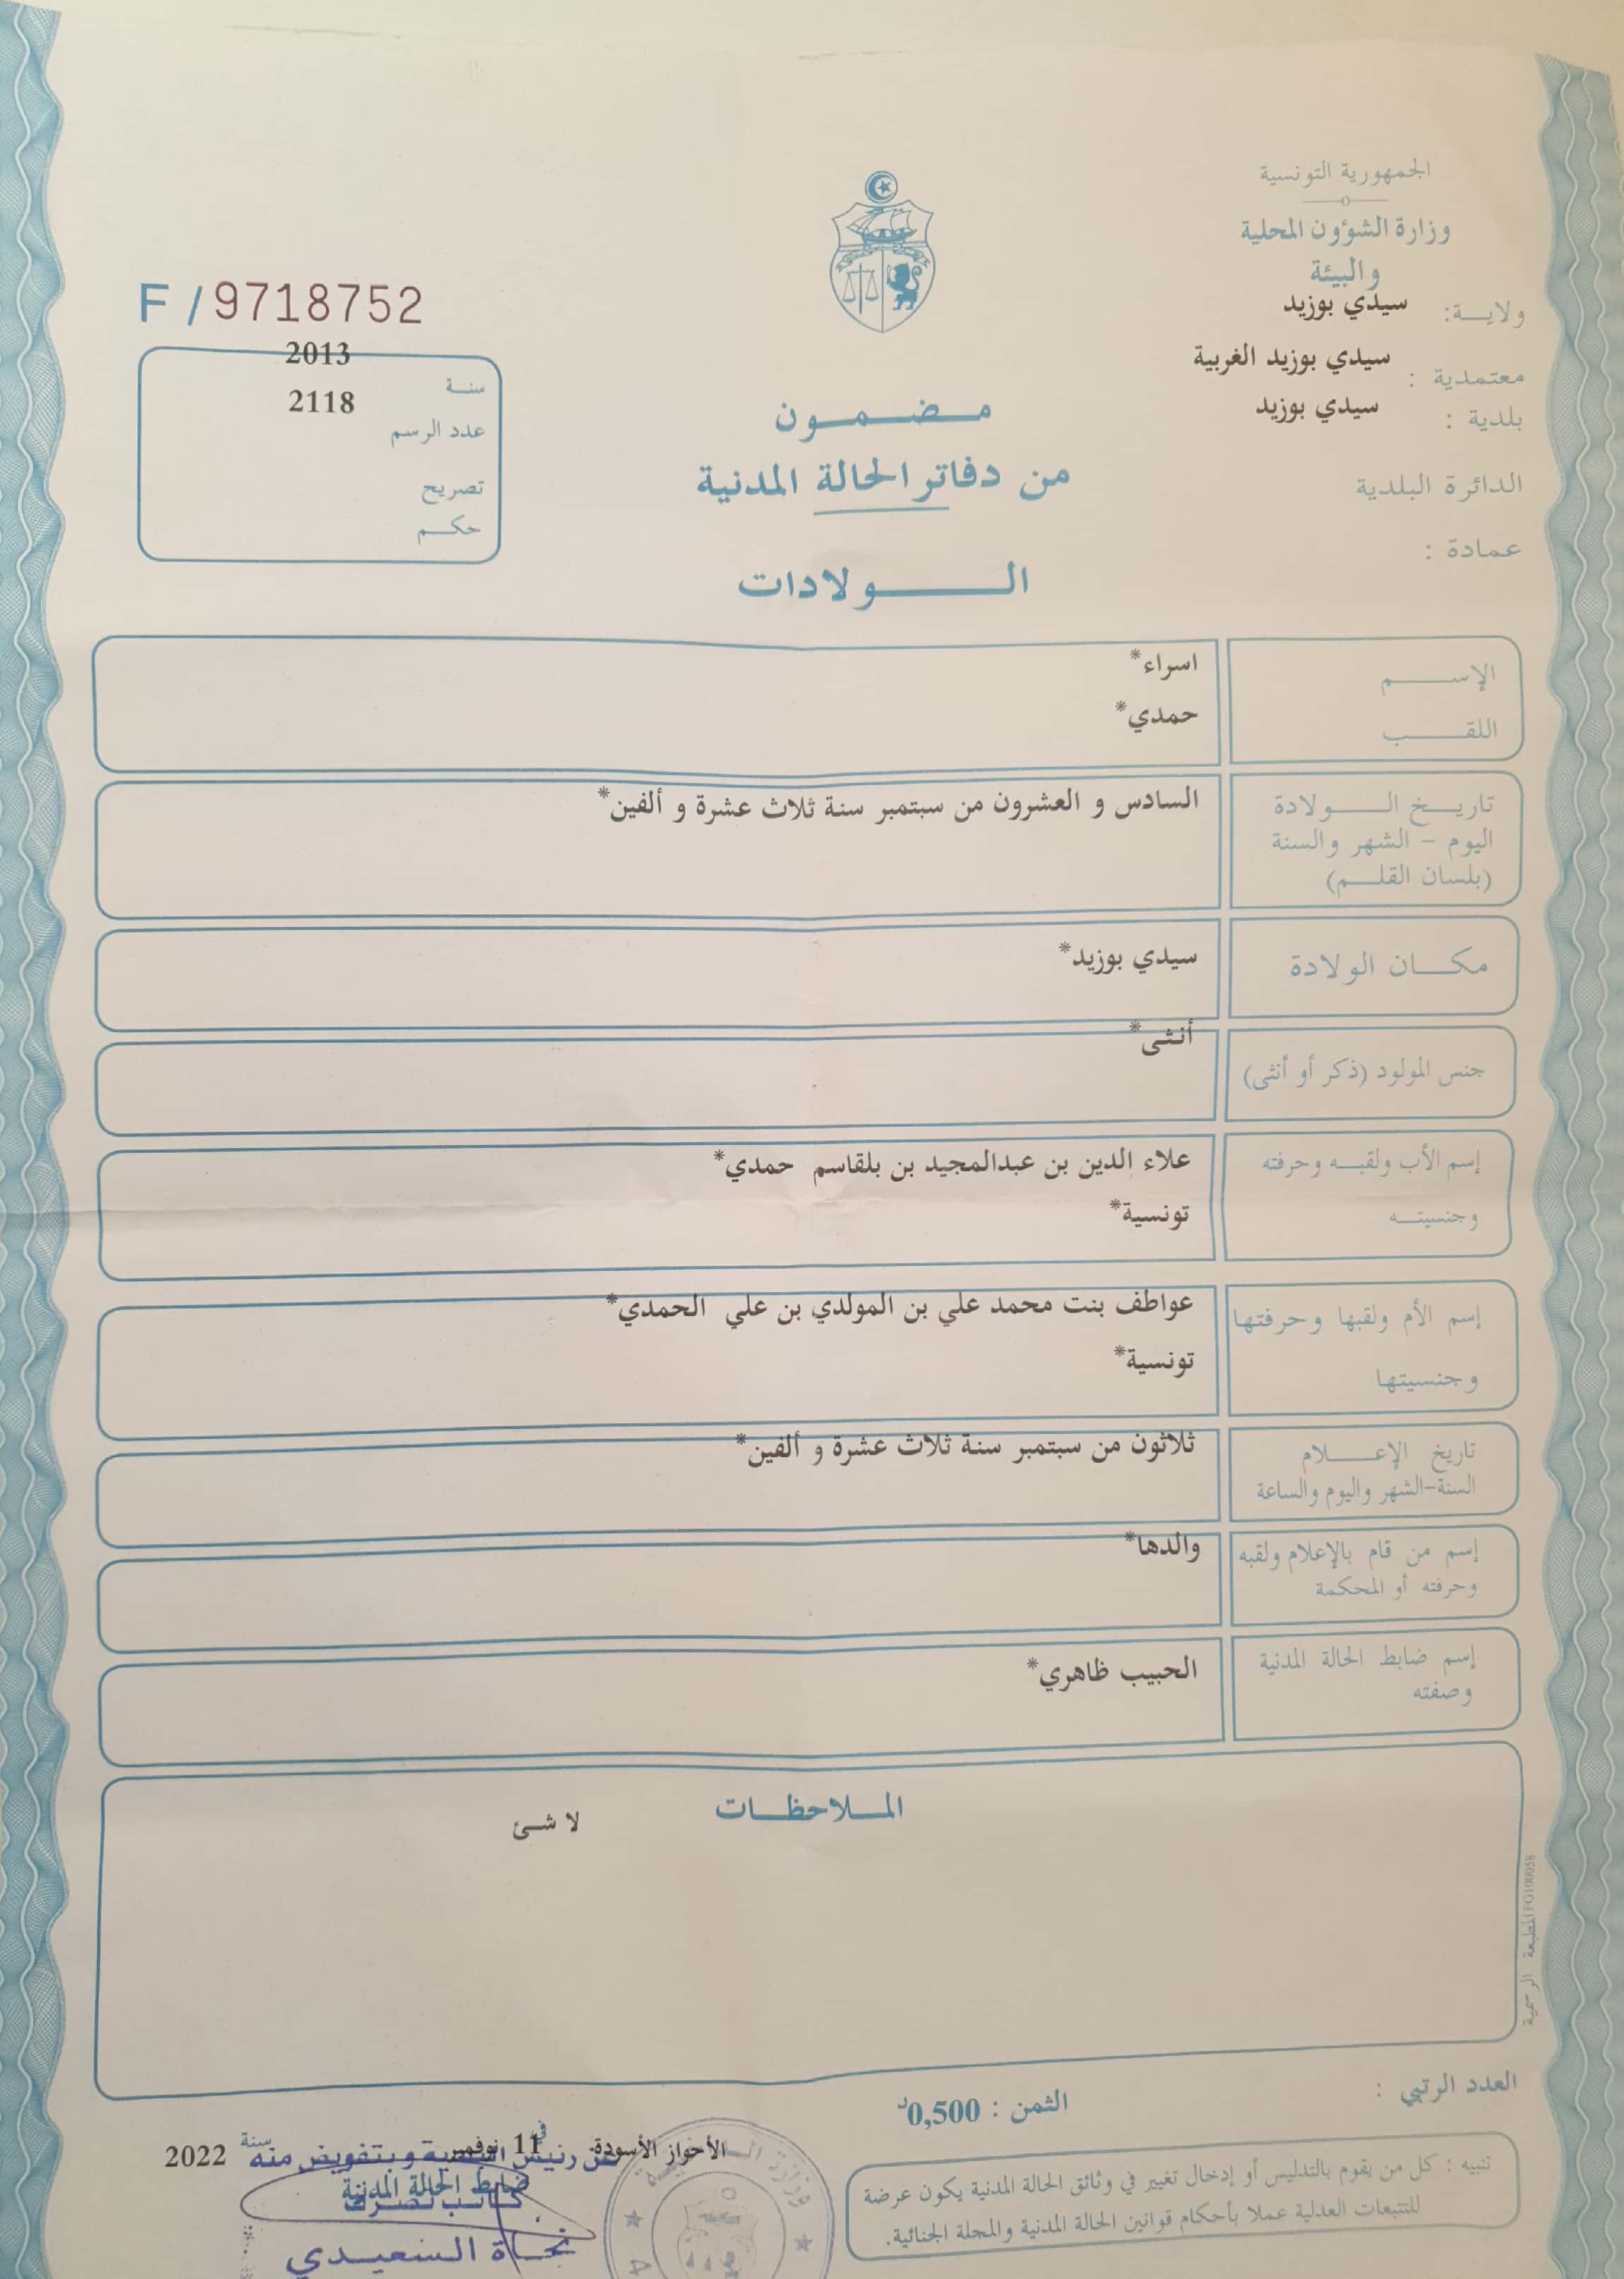 الجمهورية التونسية
وزارة الشؤون المحلية
والبيئة
ولاية: سيدي بوزيد
معتمدية : سيدي بوزيد الغربية
بلدية : سيدي بوزيد
الدائرة البلدية
عمادة :
F / 9718752
سنة 2013
عدد الرسم 2118
تصريح
حكم
مضمون
من دفاتر الحالة المدنية
الولادات
الإسم اسراء*
اللقب حمدي*
تاريخ الولادة السادس و العشرون من سبتمبر سنة ثلاث عشرة و ألفين*
اليوم - الشهر والسنة
(بلسان القلم)
مكان الولادة سيدي بوزيد*
جنس المولود (ذكر أو أنثى) أنثى*
إسم الأب ولقبه وحرفته علاء الدين بن عبدالمجيد بن بلقاسم حمدي*
وجنسيته تونسية*
إسم الأم ولقبها وحرفتها عواطف بنت محمد علي بن المولدي بن علي الحمدي*
وجنسيتها تونسية*
تاريخ الإعلام ثلاثون من سبتمبر سنة ثلاث عشرة و ألفين*
السنة-الشهر واليوم والساعة
إسم من قام بالإعلام ولقبه والدها*
وحرفته أو المحكمة
إسم ضابط الحالة المدنية الحبيب ظاهري*
وصفته
الملاحظات
لا شئ
المطبعة الرسمية FG100058
العدد الرتبي :
الثمن : 0,500د
تنبيه : كل من يقوم بالتدليس أو إدخال تغيير في وثائق الحالة المدنية يكون عرضة
للتتبعات العدلية عملا بأحكام قوانين الحالة المدنية والمجلة الجنائية.
الأحواز الأسودة في 11 نوفمبر سنة 2022
عن رئيس البلدية وبتفويض منه
ضابط الحالة المدنية
كاتب تصرف
نجاة السعيدي
وزارة